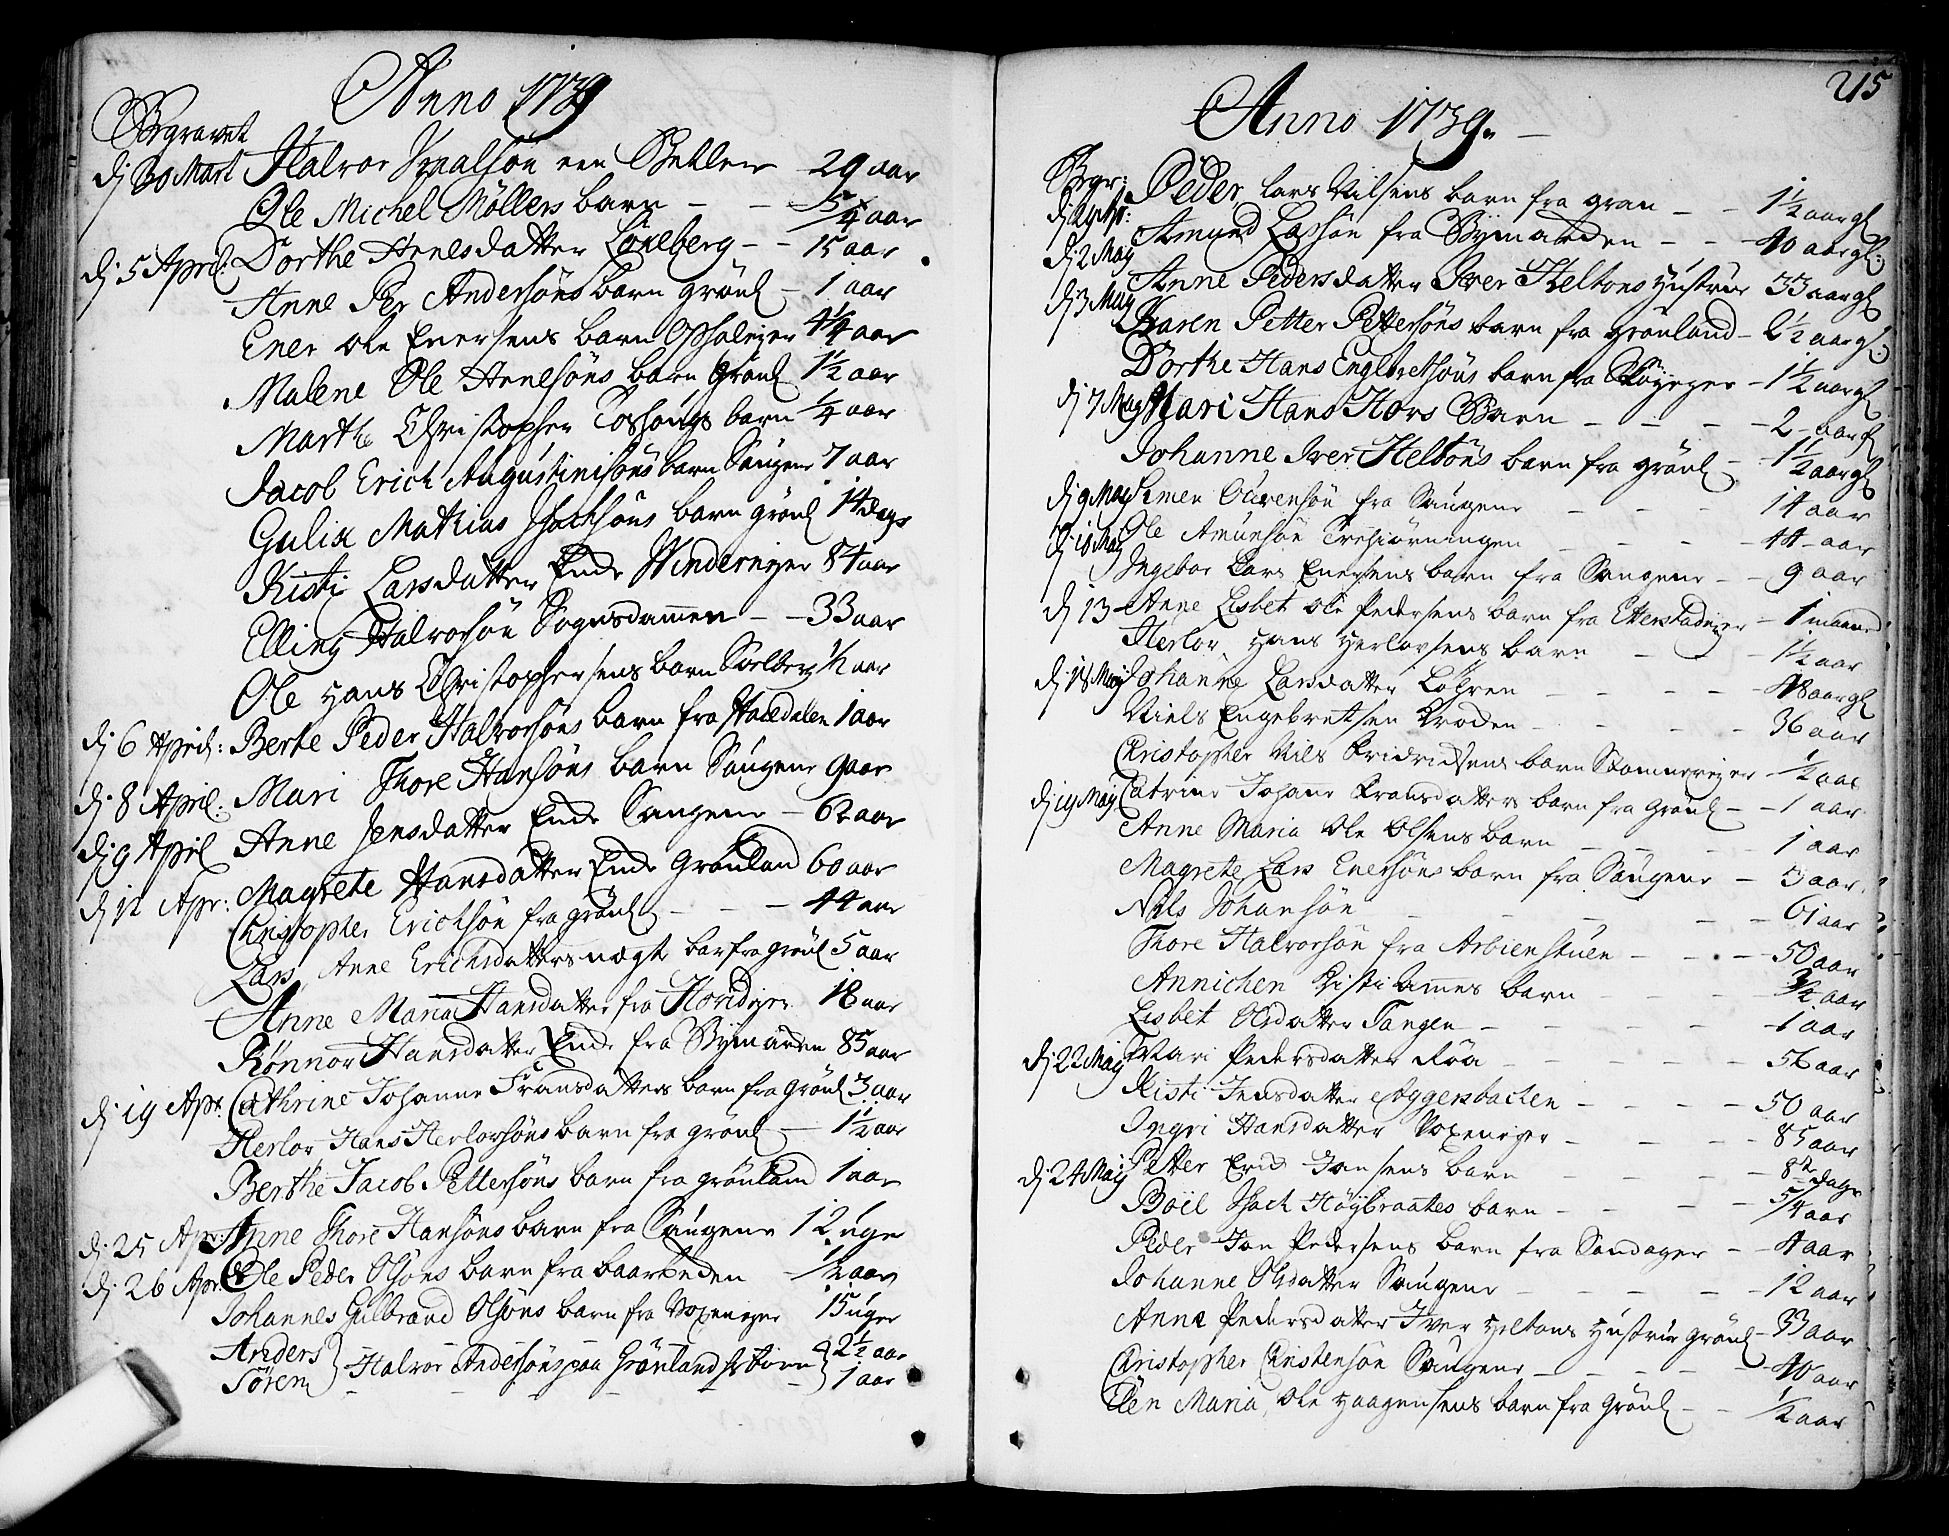 Anno 1739
Begravet
dj 30 Mart Halvor een Betler 29 aar
Ole Michel Möllers barn - - 5/4 aar
dj 5 April: Dorthe Arnesdatter Loxeberg - - 15 aar
Anne Per Andersöns barn grönl - 1 aar
Ener ole Enersens barn Opsaleyer 4 1/4 aar
Malene Ole Arnesöns barn Grönl 1 1/2 aar
Marthe Christopher barn 1/4 aar
Jacob Erich Augustinisöns barn Saugene 7 aar
Gulix Mathias Isachsöns barn grönl 14 dage
Kisti Larsdatter Enke Winderneyer 84 aar
Elling Halvorsön Sognsdammen - - 33 aar
Ole Hans Christophersens barn Soelberg 1/2 aar
dj 6 April: Berte Peder Halvorsöns barn fra Maredalen 1 aar
dj 8 April: Mari Thore Hansöns barn Saugene 9 aar
dj 9 April Anne Jensdatter Enke Saugene - 62 aar
dj 12 Apr: Magrete Hansdatter Enke Grönland 60 aar
Christopher Erichsön fra grönl - - - 44 aar
Lars Anne Erichsdatters uægt barn fra grönl 5 aar
Anne Maria Hansdatter fra 18 aar
Rönnor Hansdatter Enke fra Bymarken 85 aar
dj 19 Apr. Cathrine Johanne Fransdatters barn fra Grönl 3 aar
Herlov Hans Herlovsöns barn fra grönl - 1 1/2 aar
Berthe Jacob Pettersöns barn fra grönland 1 aar
dj 25 Apr: Anne Thore Hansöns barn fra Saugene 12 uger
dj 26 Apr: Ole Peder Olsöns barn fra - 1/2 aar
Johannes Gulbrand Olsöns barn fra Voxeneyer 15 uger
Anders } Halvor Andersöns paa Grönland 2 börn } 2 1/2 aar
Sören } - - - - - - } 1 aar
215
Anno 1739.
Begr:
dj 29 Apr: Peder, Lars Nilsens barn fra gran - - 1 1/2 aar gl
dj 2 May Amund Larssön fra Bymarken - - 40 aar gl:
dj 3 May Anne Pedersdatter Iver Heltons Hustrue 33 aar gl
Karen Petter Pettersöns barn fra grönland - 2 1/2 aar gl:
Dorthe Hans Englbretsöns barn fra Sköyeyer - 1 1/2 aar gl
dj 7 May Mari Hans Hors Barn - - - - 2 - aar gl
Johanne Iver Heltöns barn fra grönl - 1 1/2 aar gl
dj 9 May Simen fra Saugene - - - 14 aar
dj 10 May Ole Amunsön Tresiörningen - - - - 44 - aar
Ingebor Lars Enersens barn fra Saugene - - 9 aar
dj 13 - Anne Lisbet ole Pedersens barn fra Etterstadeyer - 1 maaned
Herlov, Hans Herlovsens barn - - 1 1/2 aar
dj 18 May Johanne Larsdatter Lohren - - - - 48 aar gl
Niels Engebretsen Kroden - - - - 36 aar
Christopher Nils Fridrichsens barn Stamneseyer - 1/2 aar
dj 19 May Catrine Johane Fransdatters barn fra Grönl - - 1 aar
Anne Maria Ole Olsens barn - - - - 1 aar
Magrete Lars Enersöns barn fra Saugene - 3 aar
Nils Johansön - - - - - 61 aar
Thore Halvorsön fra Arbienstuen - - - 50 aar
Annichen Kisti barn - - - 3/2 aar
Lisbet Olsdatter Tangen - - - - - 1 aar
dj 22 May Mari Pedersdatter Röa - - - - 56 aar
Kisti Jensdatter Aggersbachen - - - - 50 aar
Ingri Hansdatter Voxeneyer - - - - 85 aar
dj 24 May Petter Erich Jansens barn - - - - 8te dage
Boel Isach Höybraates barn - - - - 5/4 aar
Peder Jan Pedersens barn fra Sandager - - 4 aar
Johanne Olsdatter Saugene - - - - - 12 aar
Anne Pedersdatter Iver Heltons Hustrue Grönl - 33 aar
Christopher Christensön Saugene - - - - 40 aar
Elen Maria, Ole Haagensens barn fra Grönl - - 1/2 aar